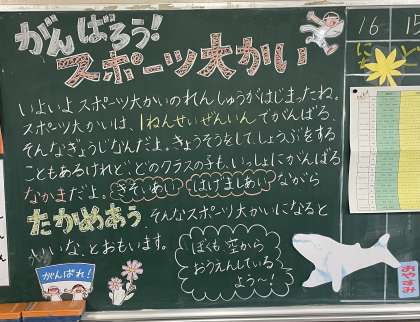 がんばろう!
スポーツ大かい
いよいよスポーツ大かいのれんしゅうがはじまったね。
スポーツ大かいは、1ねんせいぜんいんでがんばる、
そんなぎょうじなんだよ。きょうそうをして、しょうぶをする
こともあるけれど、どのクラスの子も、いっしょにがんばる
なかまだよ。きそいあい はげましあい ながら
たかめあう そんなスポーツ大かいになると
いいな、とおもいます。
ぼくも空から
おうえんしている
よう〜!
がんばれ!
おやすみ
16 15